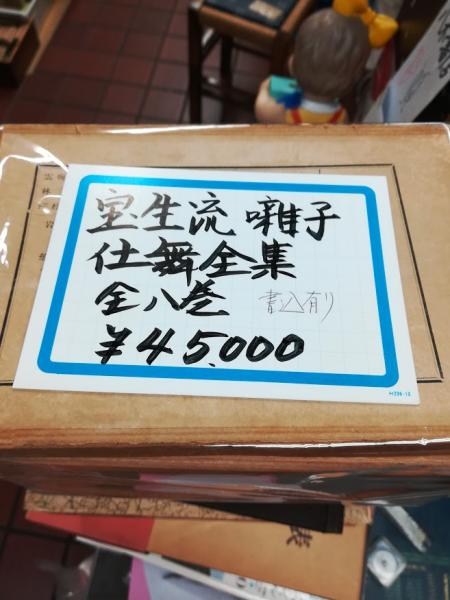 宝生流 囃子
仕舞全集
全八巻 書込有り
¥45.000
H396-13